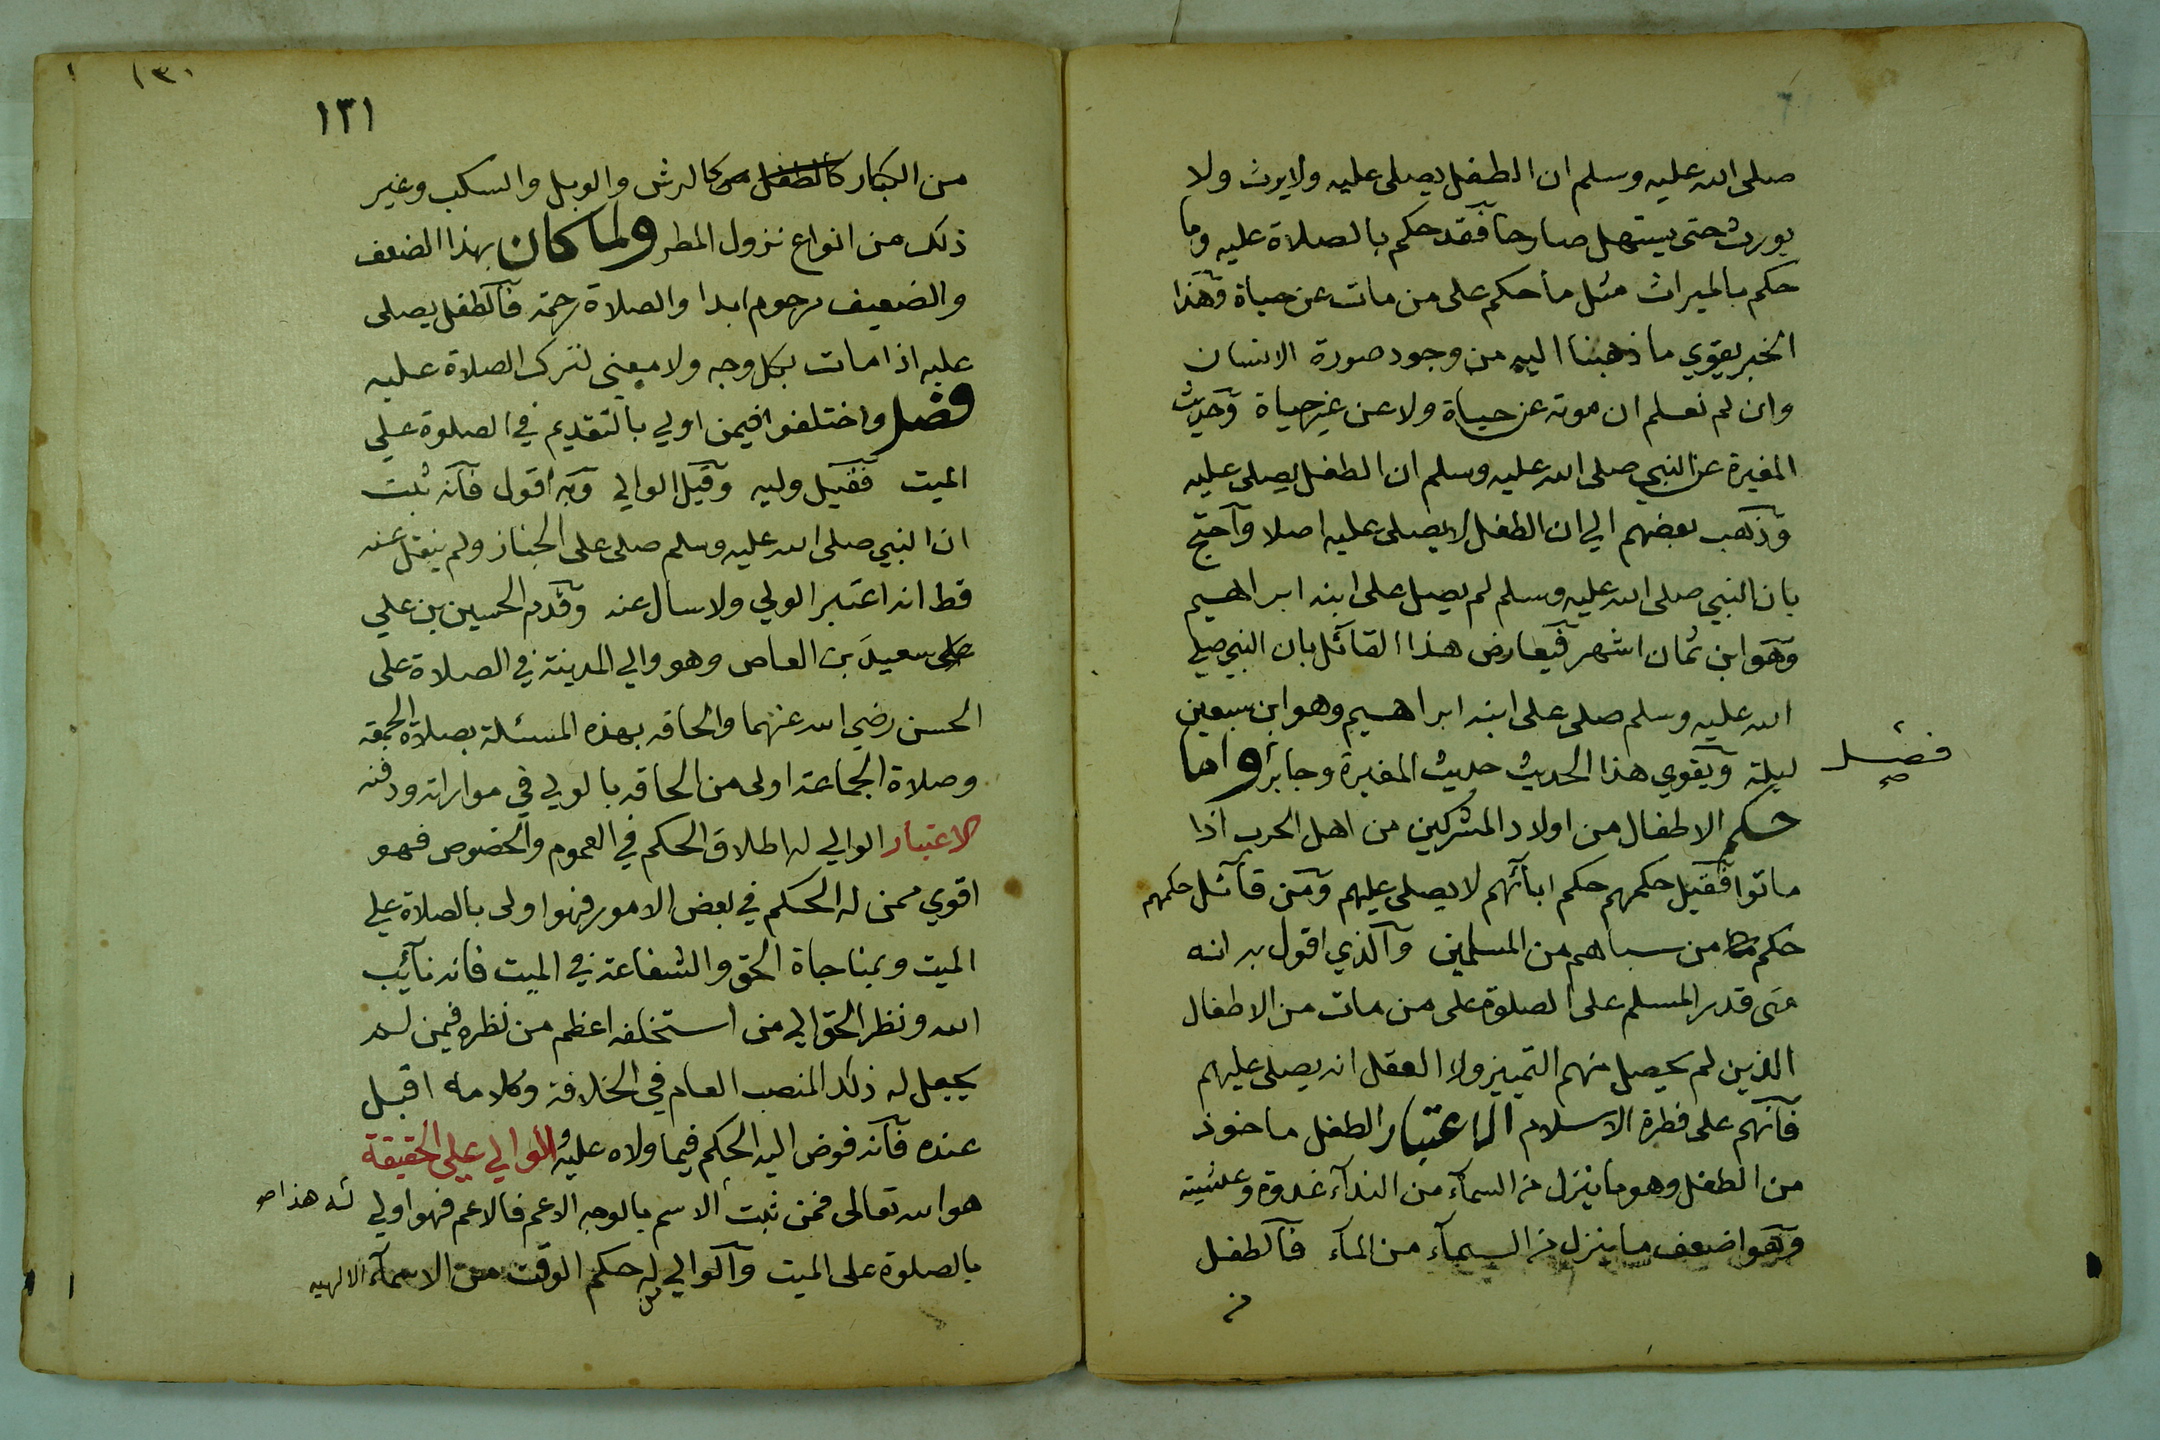 صلى الله عليه وسلم ان الطفل يصلى عليه ولا يرث ولا
يورث حتى يستهل صارخا فقد حكم بالصلاة عليه وما
حكم بالميراث مثل ما حكم على من مات عن حياة وهذا
الخبر يقوي ما ذهبنا اليه من وجود صورة الانسان
وان لم نعلم ان موته عن حياة ولا عن غير حياة وحديث
المغيرة عن النبي صلى الله عليه وسلم ان الطفل يصلى عليه
وذهب بعضهم الي ان الطفل لا يصلى عليه اصلا واحتج
بان النبي صلى الله عليه وسلم لم يصل على ابنه ابراهيم
وهو ابن ثمان اشهر فيعارض هذا القائل بان النبي صلي
الله عليه وسلم صلى على ابنه ابراهيم وهو ابن سبعين
ليلة ويقوي هذا الحديث حديث المغيرة وجابر واما
فصل
حكم الاطفال من اولاد المشركين من اهل الحرب اذا
ماتوا فقيل حكمهم حكم ابآئهم لا يصلى عليهم ومن قآئل حكمهم
حكم من سباهم من المسلمين والذي اقول به انه
متى قدر المسلم على الصلوة على من مات من الاطفال
الذين لم يحصل منهم التمييز ولا العقل انه يصلى عليهم
فانهم على فطرة الاسلام الاعتبار الطفل ماخوذ
من الطفل وهو ما ينزل من السمآء من الندآء غدوة وعشية
وهو اضعف ما ينزل من السمآء من المآء فالطفل
من
١٣٠
١٣١
من الكبار كالطفل من كالرش والوبل والسكب وغير
ذلك من انواع نزول المطر ولما كان بهذا الضعف
والضعيف مرحوم ابدا والصلاة رحمة فالطفل يصلى
عليه اذا مات بكل وجه ولا معنى لترك الصلاة عليه
فصل واختلفوا فيمن اولي بالتقديم في الصلوة علي
الميت فقيل وليه وقيل الوالي وبه اقول فانه ثبت
ان النبي صلى الله عليه وسلم صلى على الجنائز ولم ينقل عنه
قط انه اعتبر الولي ولا سال عنه وقدم الحسين بن علي
سعيد بن العاص وهو والي المدينة في الصلاة على
الحسن رضي الله عنهما والحاقه بهذه المسئلة بصلاة الجمعة
وصلاة الجماعة اولى من الحاقه بالولي في مواراته ودفنه
الاعتبار الوالي له اطلاق الحكم في العموم والخصوص فهو
اقوي ممن له الحكم في بعض الامور فهو اولى بالصلاة علي
الميت وبمناجاة الحق والشفاعة في الميت فانه نآئب
الله ونظر الحق الي من استخلفه اعظم من نظره فيمن لم
يجعل له ذلك المنصب العام في الخلافة وكلامه اقبل
عنده فانه فوض اليه الحكم فيما ولاه عليه والوالي علي الحقيقة
هو الله تعالى فمن ثبت الاسم بالوجه الاعم فالاعم فهو اولي
له هذا
بالصلوة على الميت والوالي له حكم الوقت من الاسمآء الالهيه
من